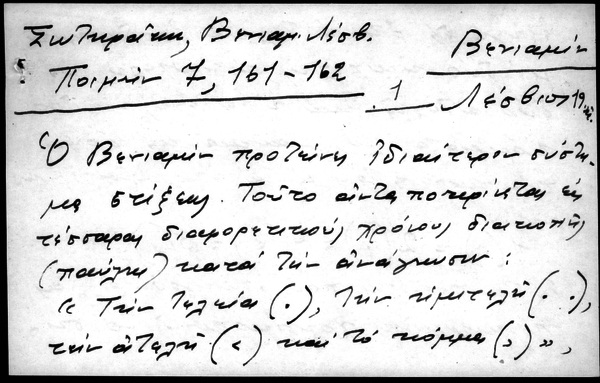 Σωτηράκη, Βενιαμ. Λέσβ.
Ποιμήν 7, 161-162
Βενιαμίν
1 Λέσβιος 19
Ὁ Βενιαμίν προτείνει ἰδιαίτερον σύστη-
μα στίξεως. Τοῦτο ἀνταποκρίνεται εἰς
τέσσαρας διαφορετικούς χρόνους διακοπῆς
(παύσεως) κατά τήν ἀνάγνωσιν:
« τήν τελεία (.), τήν ἡμιτελῆ (. .),
τήν ἀτελῆ (<) καί τό κόμμα (,) »,